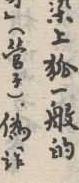 染上狐一般的
」（管子）。偽詐